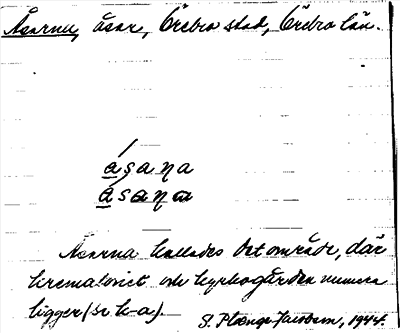 Åsarna, åsar, Örebro stad, Örebro län.
åsaṇa
åsaṇa
Åsarna kallades det område, där
krematoriet och kyrkogården numera
ligger (se k-a).
S. Plænge Jacobson, 1944